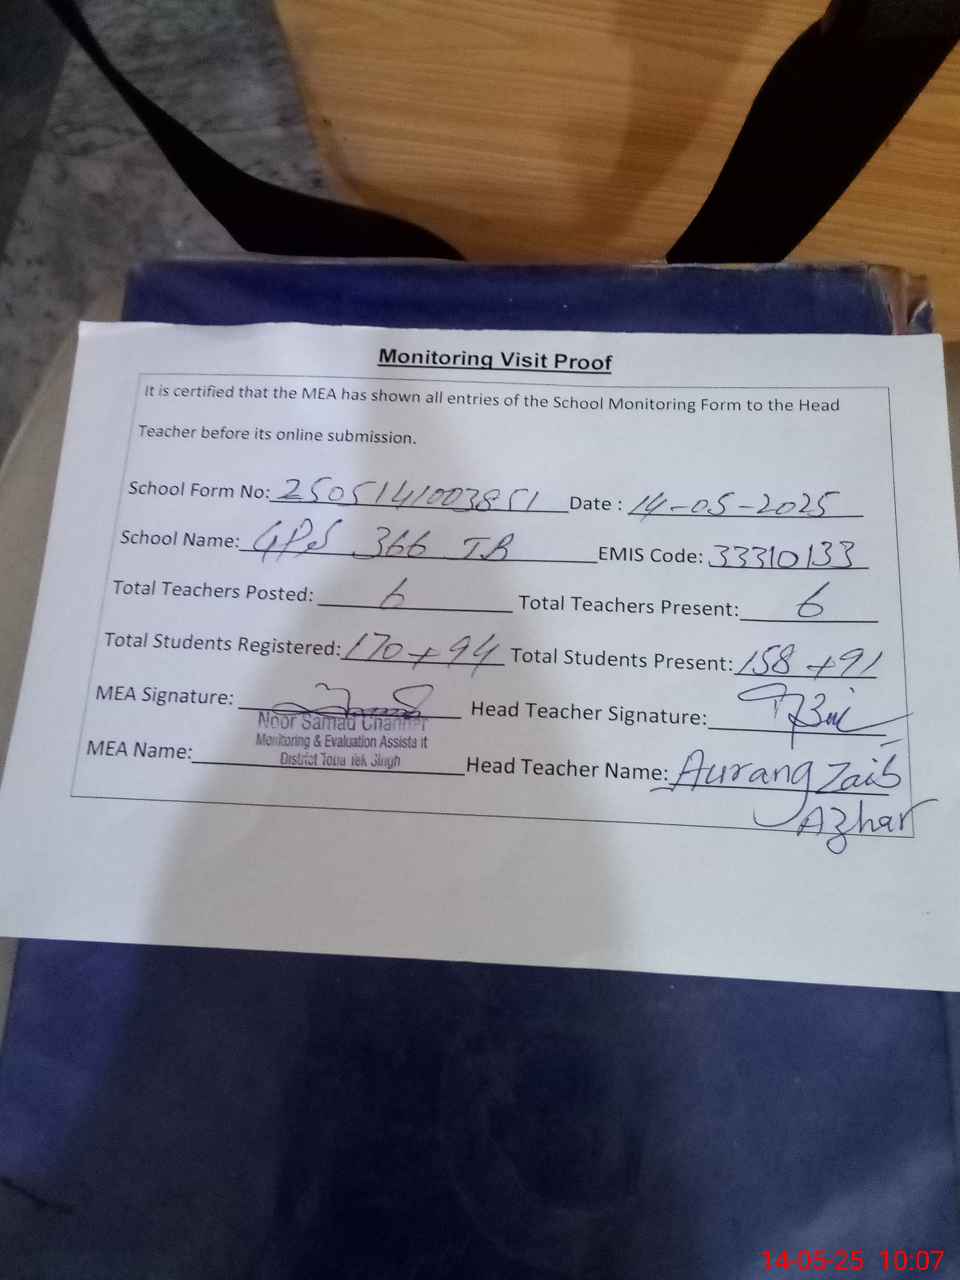 Monitoring Visit Proof
It is certified that the MEA has shown all entries of the School Monitoring Form to the Head
Teacher before its online submission.
School Form No: 2505141003851 Date : 14-05-2025
School Name: GPS 366 JB EMIS Code: 33310133
Total Teachers Posted: 6 Total Teachers Present: 6
Total Students Registered: 170+94 Total Students Present: 158+91
MEA Signature: Head Teacher Signature:
Noor Samad Channer
Monitoring & Evaluation Assistant
District Toba Tek Singh
MEA Name: Head Teacher Name: Aurangzaib
Azhar
14-05-25 10:07